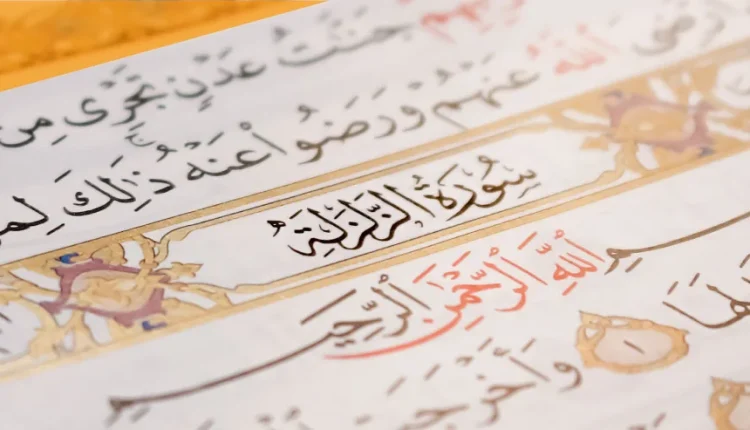 جَنَّتُ عَدْنٍ تَجْرِى مِن
رَضِىَ اللَّهُ عَنْهُمْ وَرَضُوا عَنْهُ ذَٰلِكَ لِمَنْ
سُورَةُ الزَّلْزَلَةِ
بِسْمِ اللَّهِ الرَّحْمَنِ الرَّحِيمِ
١ وَأَخْرَجَتِ